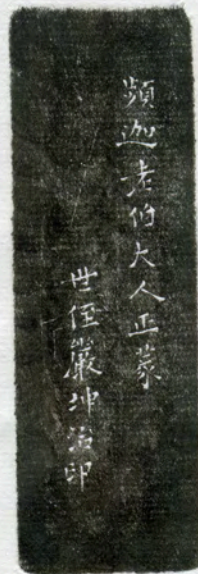 頻迦老伯大人正篆
世侄嚴坤治印